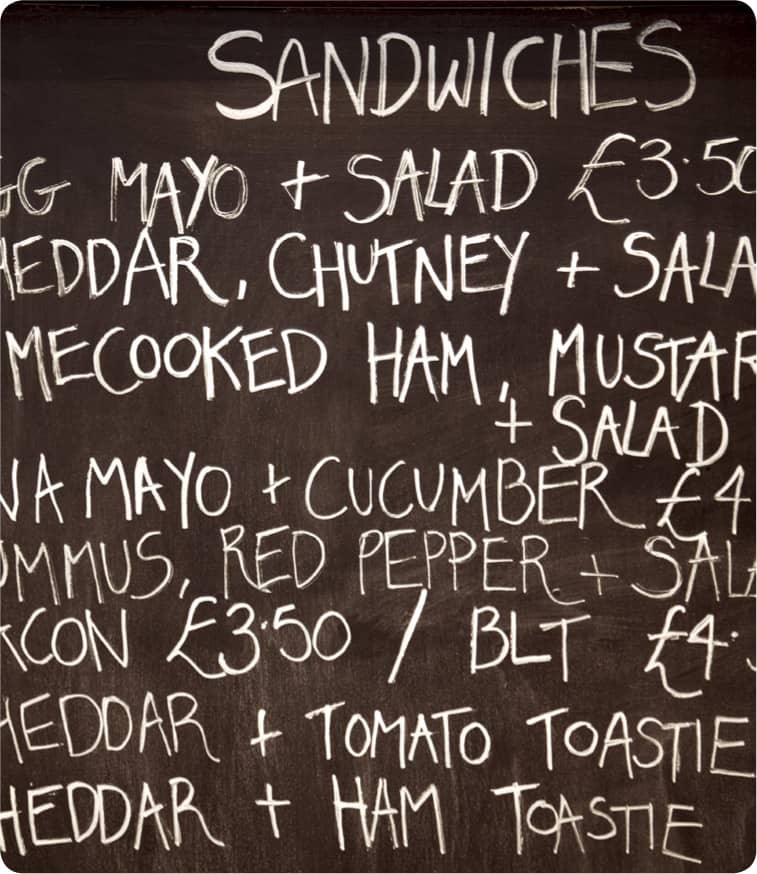 SANDWICHES
GG MAYO + SALAD £3.50
HEDDAR, CHUTNEY + SALA
MECOOKED HAM, MUSTAR
+ SALAD
NA MAYO + CUCUMBER £4
UMMUS, RED PEPPER + SALA
ACON £3.50 / BLT £4.
HEDDAR + TOMATO TOASTIE
HEDDAR + HAM TOASTIE